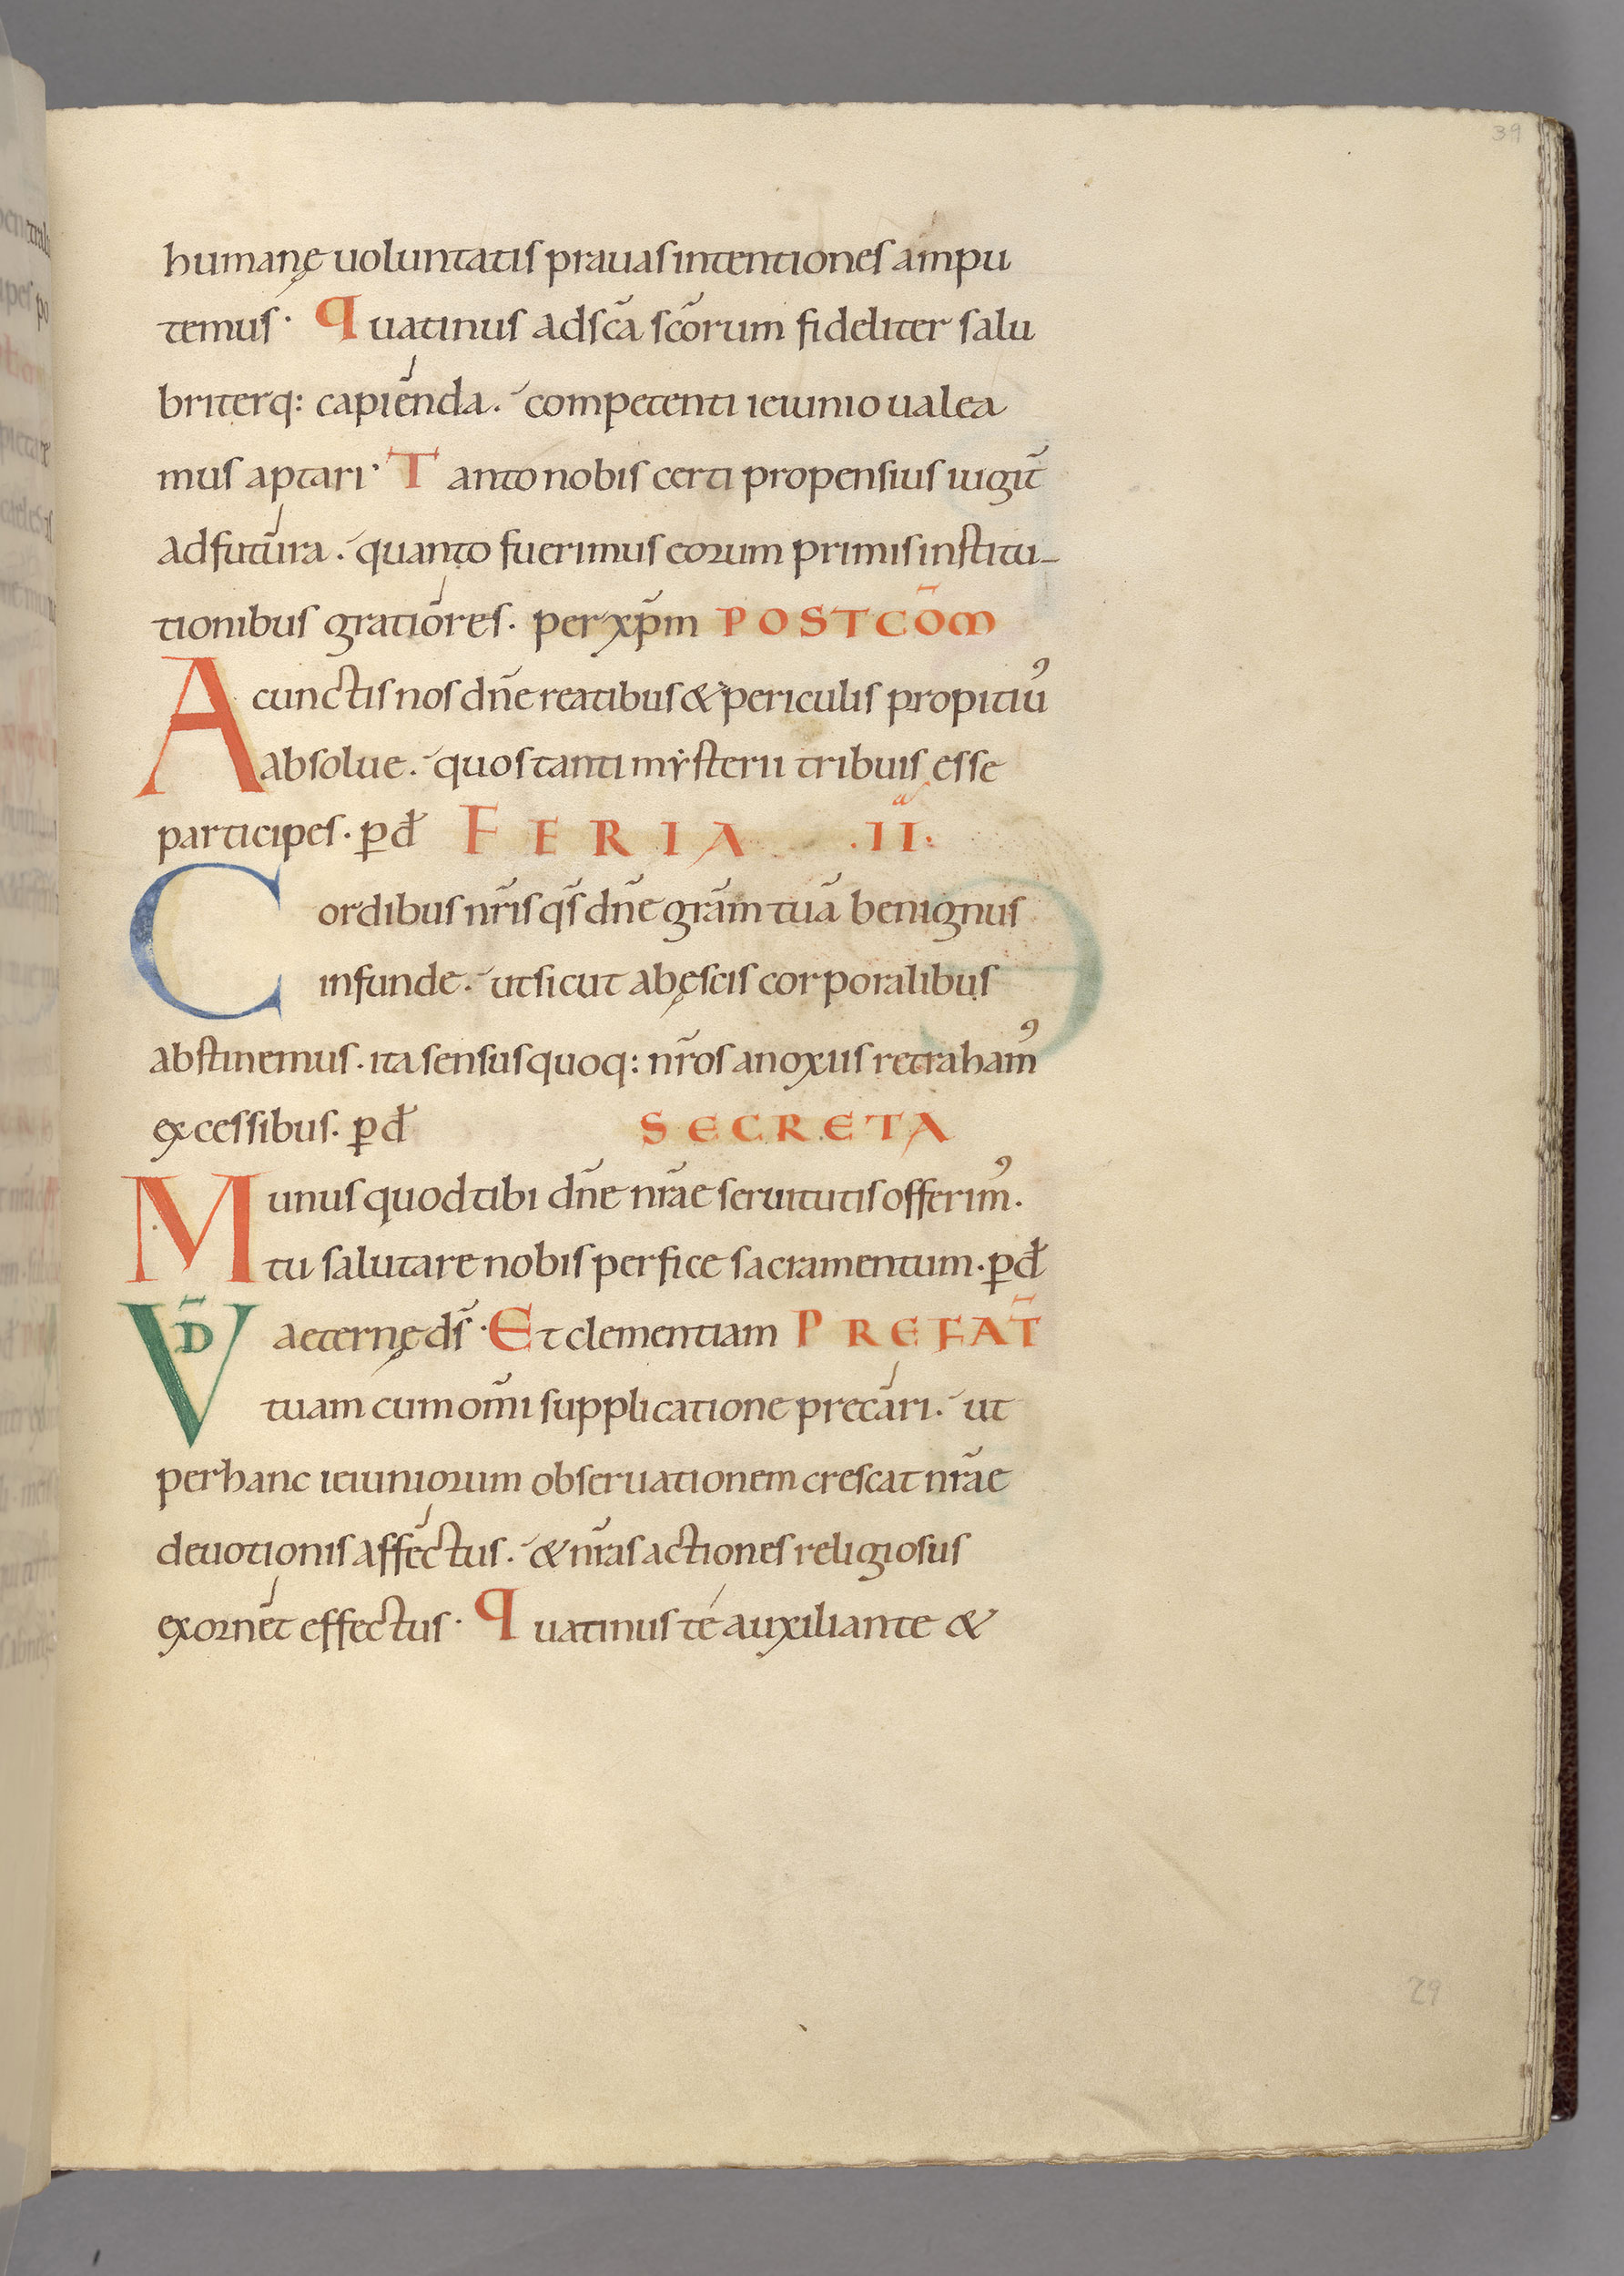 39
humanę uoluntatis prauas intentiones ampu
temus· Quatinus ad sc̄a sc̄orum fideliter salu
briterq: capienda. competenti ieiunio ualea
mus aptari· Tanto nobis certi propensius iugit̄
ad futura. quanto fuerimus eorum primis institu-
tionibus gratiores. per xp̄m POSTCŌM
A cunctis nos dn̄e reatibus & periculis propitiuʼ
absolue. quos tanti mẏsterii tribuis esse
participes. p̲ đ FERIA .II:ᵃ
Cordibus nr̄is qs̄ dn̄e grām tuā benignus
infunde. ut sicut ab ęscis corporalibus
abstinemus. ita sensus quoq: nr̄os a noxiis retrahamʼ
excessibus. p̲ đ SECRETA
Munus quod tibi dn̄e nr̄ae seruitutis offerimʼ.
tu salutare nobis perfice sacramentum. p̲ đ
VD̄ aeternę ds̄· Et clementiam PREFAT̄
tuam cum om̄i supplicatione precari. ut
per hanc ieiuniorum obseruationem crescat nr̄ae
deuotionis affectus. & nr̄as actiones religiosus
exornet effectus· Quatinus te auxiliante &
29